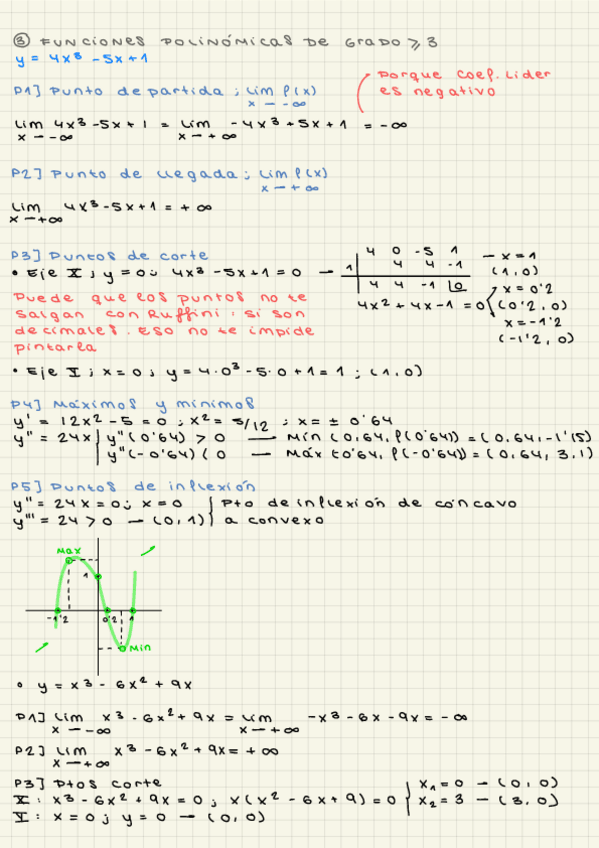 ③ FUNCIONES POLINÓMICAS DE GRADO ⩾ 3
y = 4x³ - 5x + 1
P1] Punto de partida ; lim f(x)
x → -∞
Porque coef. lider
es negativo
lim 4x³ - 5x + 1 = lim -4x³ + 5x + 1 = -∞
x → -∞ x → +∞
P2] Punto de llegada ; lim f(x)
x → +∞
lim 4x³ - 5x + 1 = + ∞
x → +∞
P3] Puntos de corte
• Eje X ; y = 0 ; 4x³ - 5x + 1 = 0 →
4 0 -5 1
1 4 4 -1
4 4 -1 0
4x² + 4x - 1 = 0
→ x = 1
(1, 0)
x = 0'2
(0'2, 0)
x = -1'2
(-1'2, 0)
Puede que los puntos no te
salgan con Ruffini : si son
decimales. Eso no te impide
pintarla
• Eje Y ; x = 0 ; y = 4·0³ - 5·0 + 1 = 1 ; (1, 0)
P4] Máximos y mínimos
y' = 12x² - 5 = 0 ; x² = 5/12 ; x = ± 0'64
y'' = 24x y''(0'64) > 0 → Mín (0'64, f(0'64)) = (0.64, -1'15)
y''(-0'64) < 0 → Máx (-0'64, f(-0'64)) = (0.64, 3.1)
P5] Puntos de inflexión
y'' = 24x = 0 ; x = 0 Pto de inflexión de cóncavo
y''' = 24 > 0 → (0, 1) a convexo
Máx
1
-1'2 0'2 1
Mín
• y = x³ - 6x² + 9x
P1] lim x³ - 6x² + 9x = lim -x³ - 6x - 9x = -∞
x → -∞ x → +∞
P2] lim x³ - 6x² + 9x = + ∞
x → +∞
P3] Ptos corte
X : x³ - 6x² + 9x = 0 ; x(x² - 6x + 9) = 0
x₁ = 0 → (0, 0)
x₂ = 3 → (3, 0)
Y : x = 0 ; y = 0 → (0, 0)